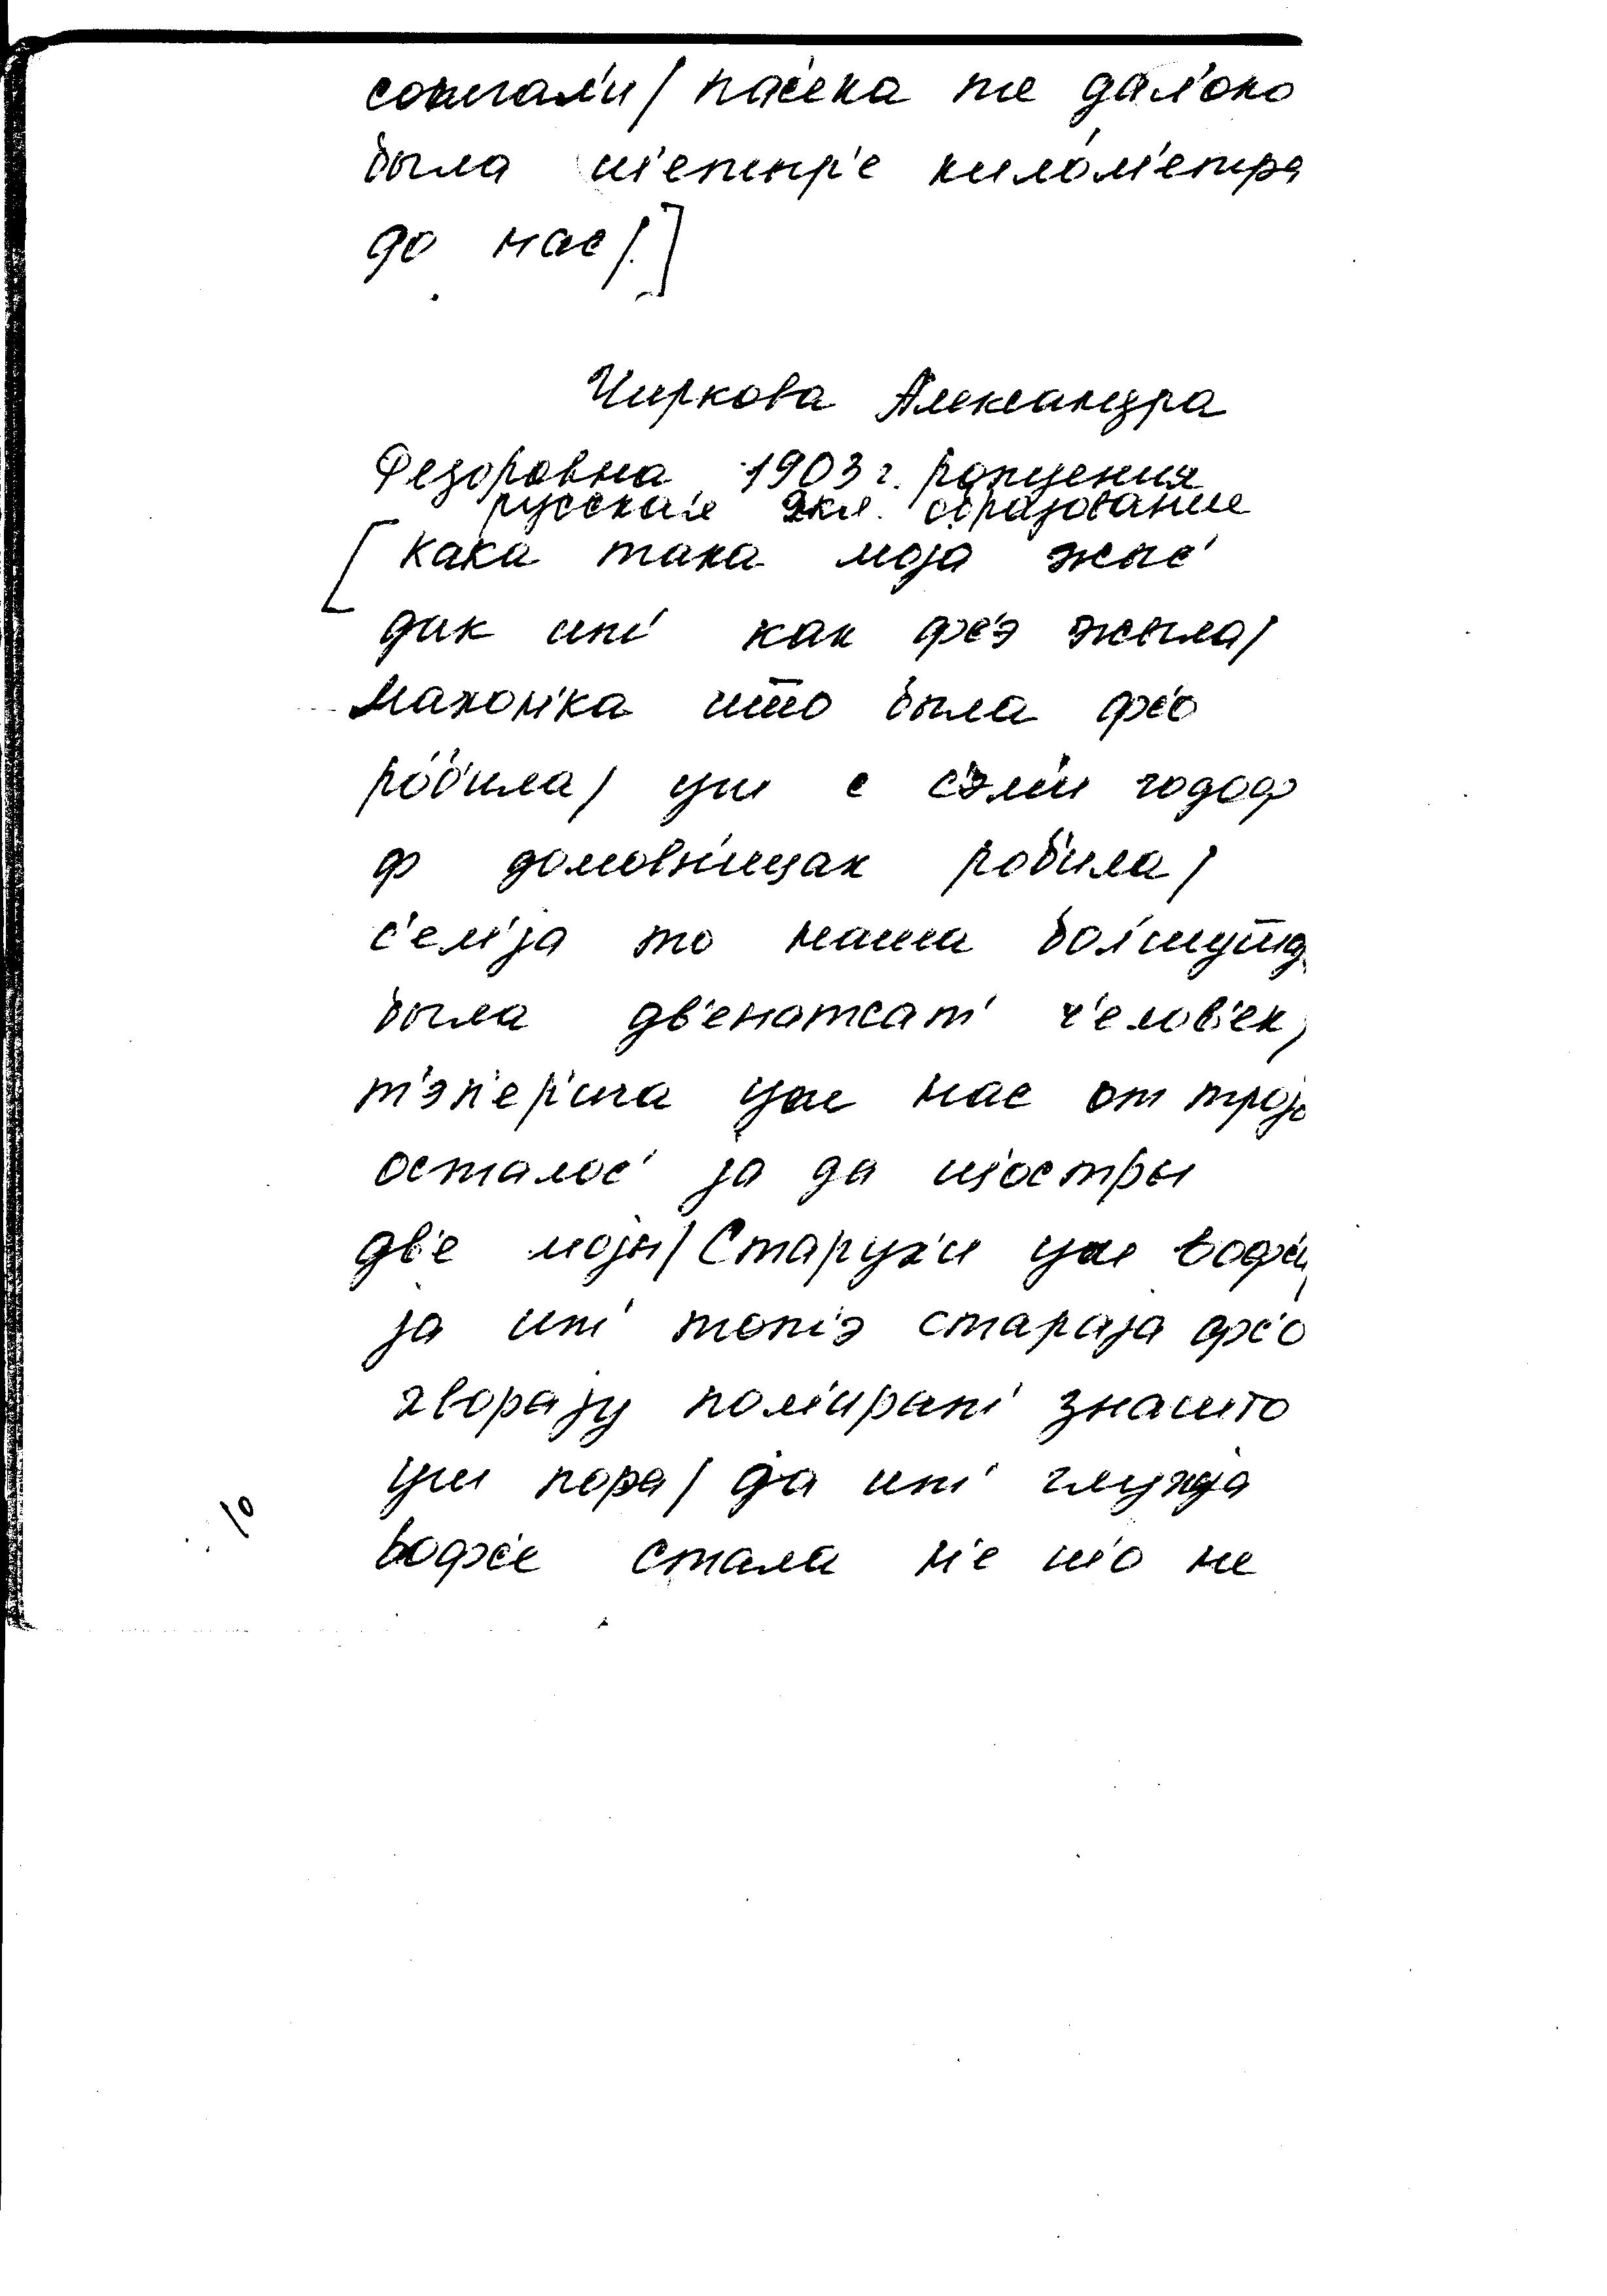 сожгал'и / пас'ека же дал'око
была ш'етыр'е килом'етра
до нас /.]
Чиркова Александра
Федоровна 1903 г. рождения
русская 2кл. образование
[ кака така моја жыс'
дак ит' как фс'э жыла /
махон'ка што была фс'о
роб'ила / уш с с'эм'и годоф
ф домовн'ицах роб'ила /
с'ем'ја то наша бол'шушша
была дв'енатсат' ч'елов'ек,
т'эп'ер'ича уже нас от троjо
осталос' ја да ш'остры
дв'е мојы / Старух'и уже вофс'и,
ја ит' топ'э стараја фс'о
хвораjу пом'ират' знашто
уш пора / да ит' глухаја
вофс'е стала н'е ш'о не
10